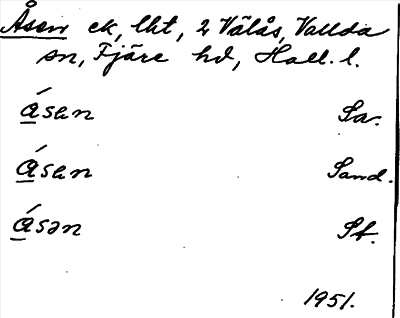 Åsen ek, lht, 2 Välås, Vallda
sn, Fjäre hd, Hall. l.
á̲sen Sa.
á̲sen Sand.
á̲sən St.
1951.